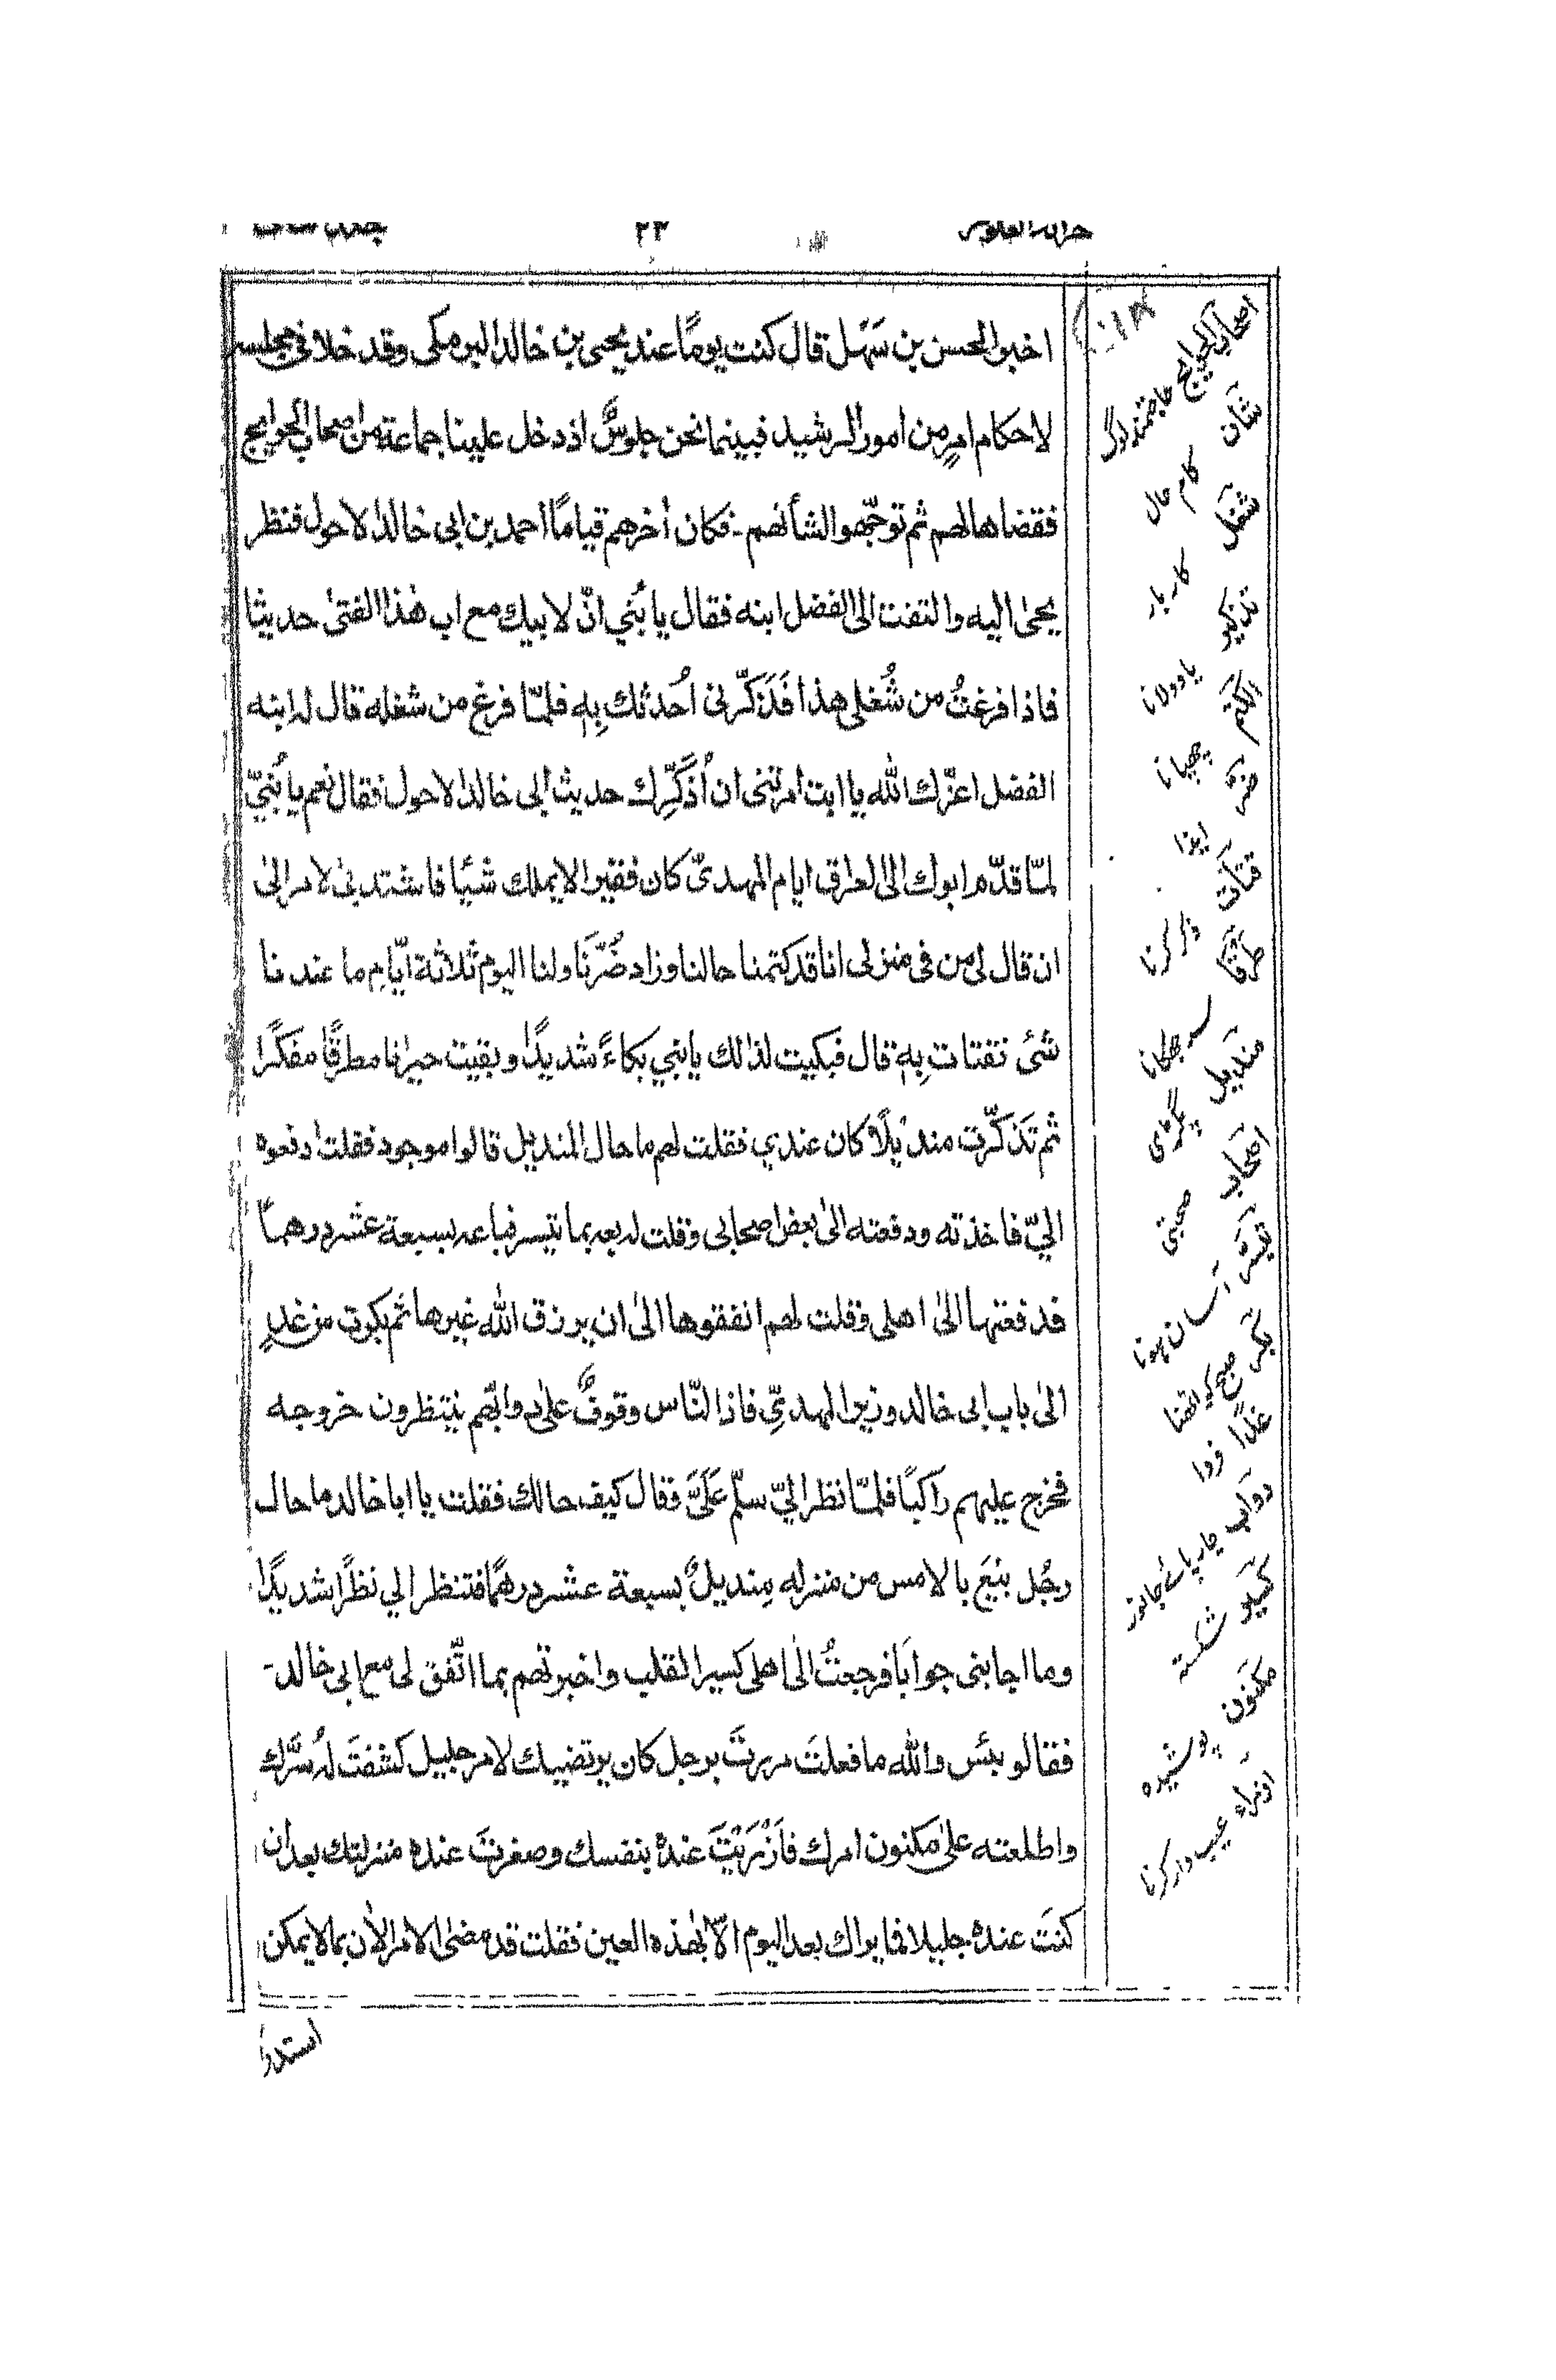 ٢٣
اخبر الحسن بن سَهْل قال كنت يومًا عند يحيى بن خالد البرمكى وقد خلا فى مجلسه
لاحكام امرٍ من امور الرشيد فبينما نحن جلوسٌ اذ دخل علينا جماعة من اصحاب الحوايج
فقضاها لهم ثم توجّهوا لشأنهم - فكان اٰخرهم قيامًا احمد بن ابى خالد الاحول فنظر
يحيٰى اليه والتفت الى الفضل ابنه فقال يا بُنىّ انّ لابيك مع اب هٰذا الفتىٰ حديثًا
فاذا فرغتُ من شُغلى هذا فَذَكّرنى اُحدثك بِهٖ فلمّا فرغ من شغله قال له ابنه
الفضل اعزّك الله يا ابت امرتنى ان اُذَكِّرك حديث ابى خالد الاحول فقال نعم يا بُنيّ
لمّا قدّم ابوك الى العراق ايام المهدىّ كان فقيرا لا يملك شيئا فاشتد بى الامر الىٰ
ان قال لى من فى منزلى انا قد كتمنا حالنا وزاد ضُرّنَا ولنا اليوم ثلاثة ايّامٍ ما عندنا
شئ نقتات بِهٖ قال فبكيت لذالك يا بنىّ بكاءً شديدًا وبقيت حيرانا مطرقًا مفكرًا
ثم تَذَكّرت منديْلًا كان عندي فقلت لهم ما حال المنديل قالوا موجود فقلت ادفعوه
اليّ فاخذته ودفعته الىٰ بعض اصحابى وقلت له بعه بما تيسر فباعه بسبعة عشر درهمًا
فدفعتها الىٰ اهلى وقلت لهم انفقوها الىٰ ان يرزق الله غيرها ثم بكرت من غدٍ
الىٰ باب ابى خالد وزير المهدىّ فاذا النّاس وقوفٌ علىٰ دوابّهم ينتظرون خروجه
فخرج عليهم راكبًا فلمّا نظر اليّ سلّم عَلَىَّ فقال كيف حالك فقلت يا ابا خالد ما حال
رجُل بيْعَ بالامس من منزله مِنديلٌ بسبعة عشر درهمًا فنظر الي نظرًا شديدًا
وما اجابنى جوابًا فرجعتُ الىٰ اهلى كسير القلب واخبرتهم بما اتّفق لى مع ابى خالد -
فقالو بئس والله ما فعلتَ مررتَ برجل كان يرتضيك لامر جليل كشفتَ لهُ سرَّك
واطلعته علىٰ مكنون امرك فاَزْرَيْتَ عندهٗ بنفسك وصغرتَ عنده منزلتك بعد ان
كنتَ عندهٗ جليلا فما يراك بعد اليوم الّا بهٰذه العين فقلت قد مضىٰ الامر الاٰن بما لا يمكن
استدرا
اصحاب الحوايج حاجتمند لوگ
شان كام حال
شغل كار بار
تذكير ياد دلانا
الكتم چهپانا
ضر ايذا
طرقا سر جهكانا
منديل پگڑى
اصحاب صحبتى
تيسر آسان ہونا
بكر صبح كو اٹھنا
غدًا فردا
دواب چار پائے جانور
كسير شكسته
مكنون پوشيده
ازراء عيب دار كرنا